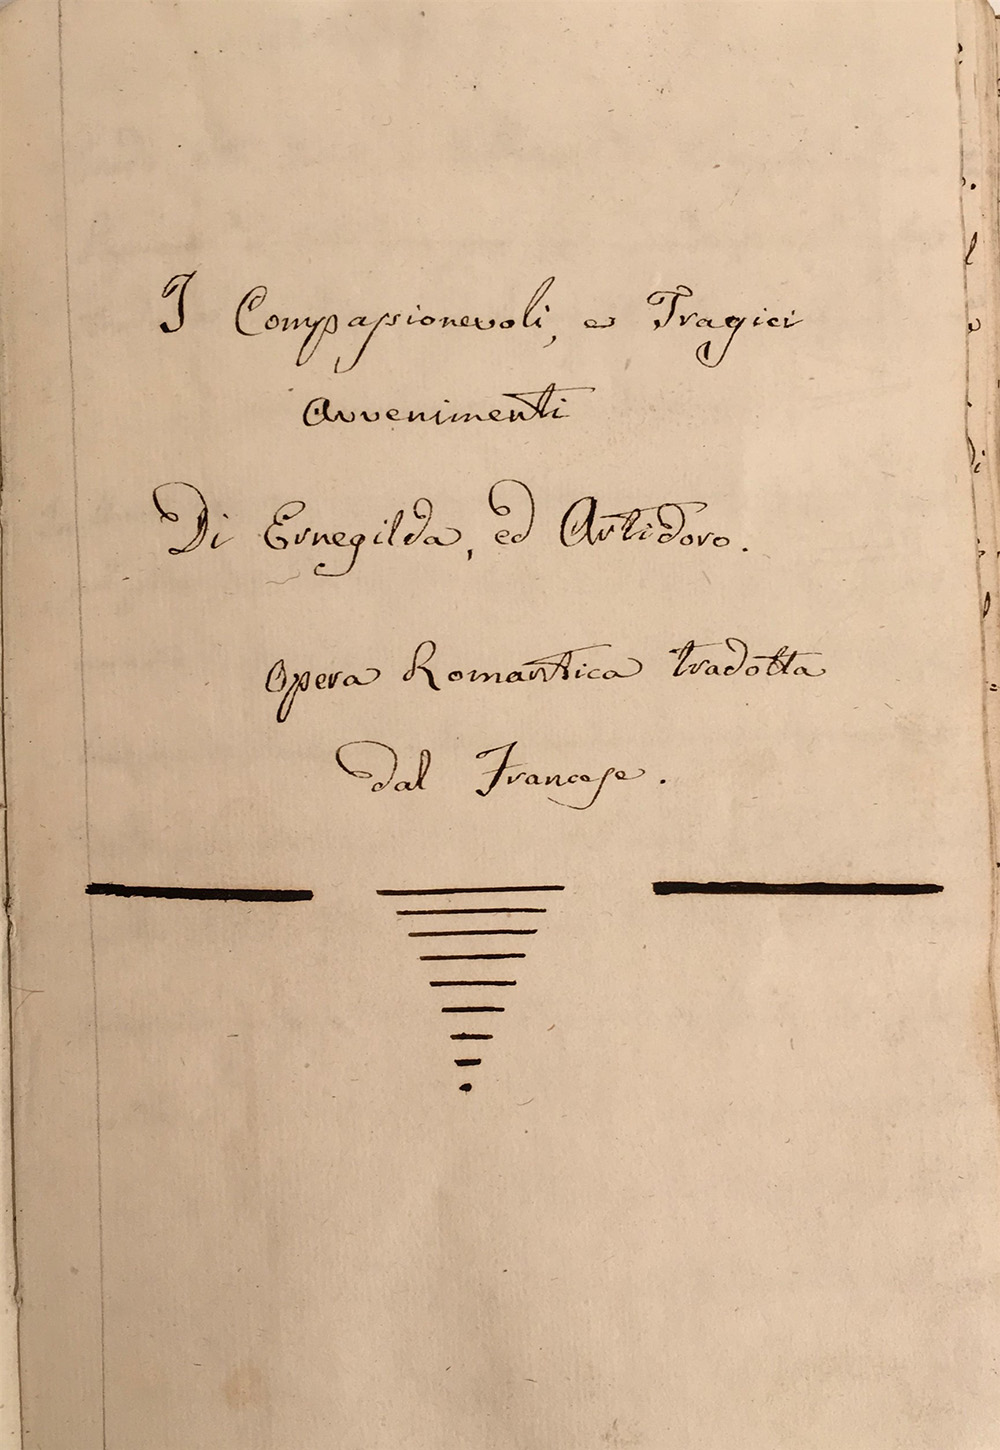 I Compassionevoli, e Tragici
Avvenimenti
Di Ernegilda, ed Artidoro.
Opera Romantica tradotta
dal Francese.